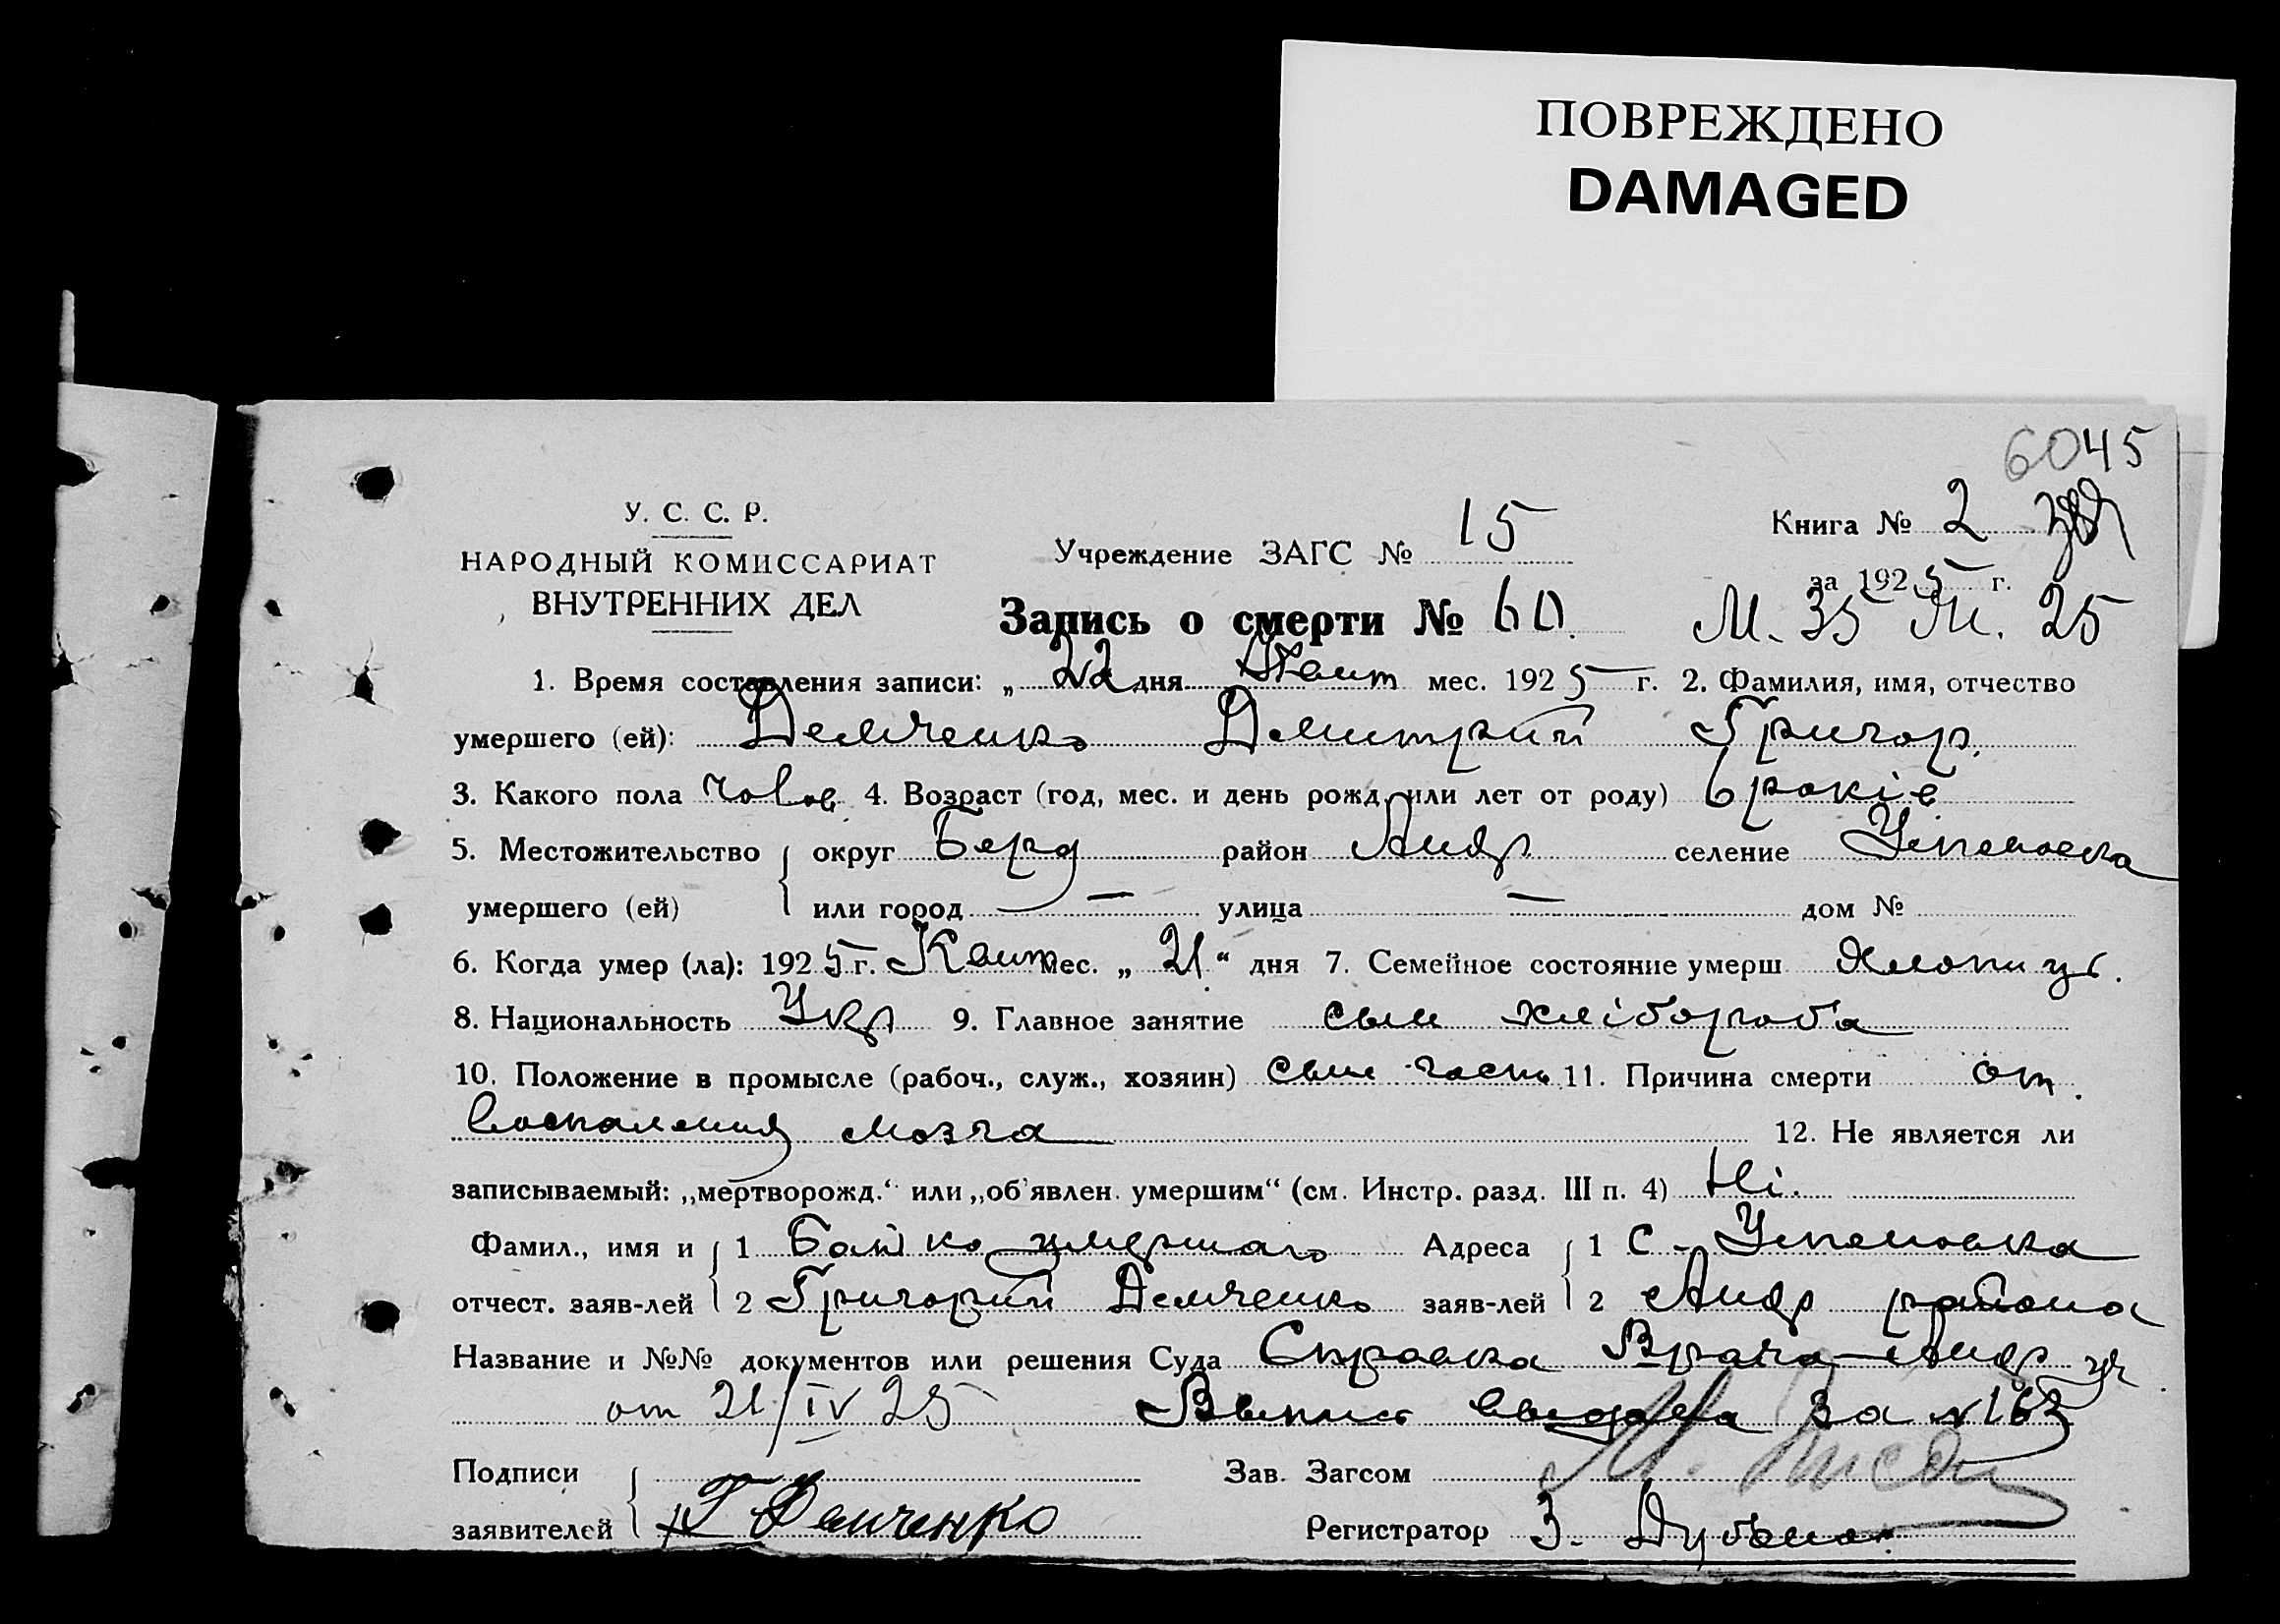 ПОВРЕЖДЕНО
DAMAGED
6045
У. С. С. Р.
НАРОДНЫЙ КОМИССАРИАТ
ВНУТРЕННИХ ДЕЛ
Учреждение ЗАГС № 15
Книга № 2
за 1925 г.
Запись о смерти № 60.
М. 35 Ж. 25
1. Время составления записи: „ 22 дня Квит мес. 1925 г. 2. Фамилия, имя, отчество
умершего (ей): Демченко Димитрий Григор.
3. Какого пола чолов. 4. Возраст (год, мес. и день рожд. или лет от роду) 6 років
5. Местожительство округ Берд район Андр селение Успеновка
умершего (ей) или город — улица — дом №
6. Когда умер (ла): 1925 г. Квит мес. „ 21 “ дня 7. Семейное состояние умерш хлопець.
8. Национальность Укр 9. Главное занятие сын хлібороба
10. Положение в промысле (рабоч., служ., хозяин) сын 11. Причина смерти от
воспаления мозга 12. Не является ли
записываемый: „мертворожд.“ или „об'явлен. умершим“ (см. Инстр. разд. III п. 4) Ні.
Фамил., имя и 1 Батько умершаго Адреса 1 С. Успеновка
отчест. заяв-лей 2 Григорий Демченко заяв-лей 2 Андр района
Название и №№ документов или решения Суда Справка Врача Андр уч.
от 21/IV 25 Выпись выдана за № 163
Подписи Зав. Загсом
заявителей Г Демченко Регистратор З.